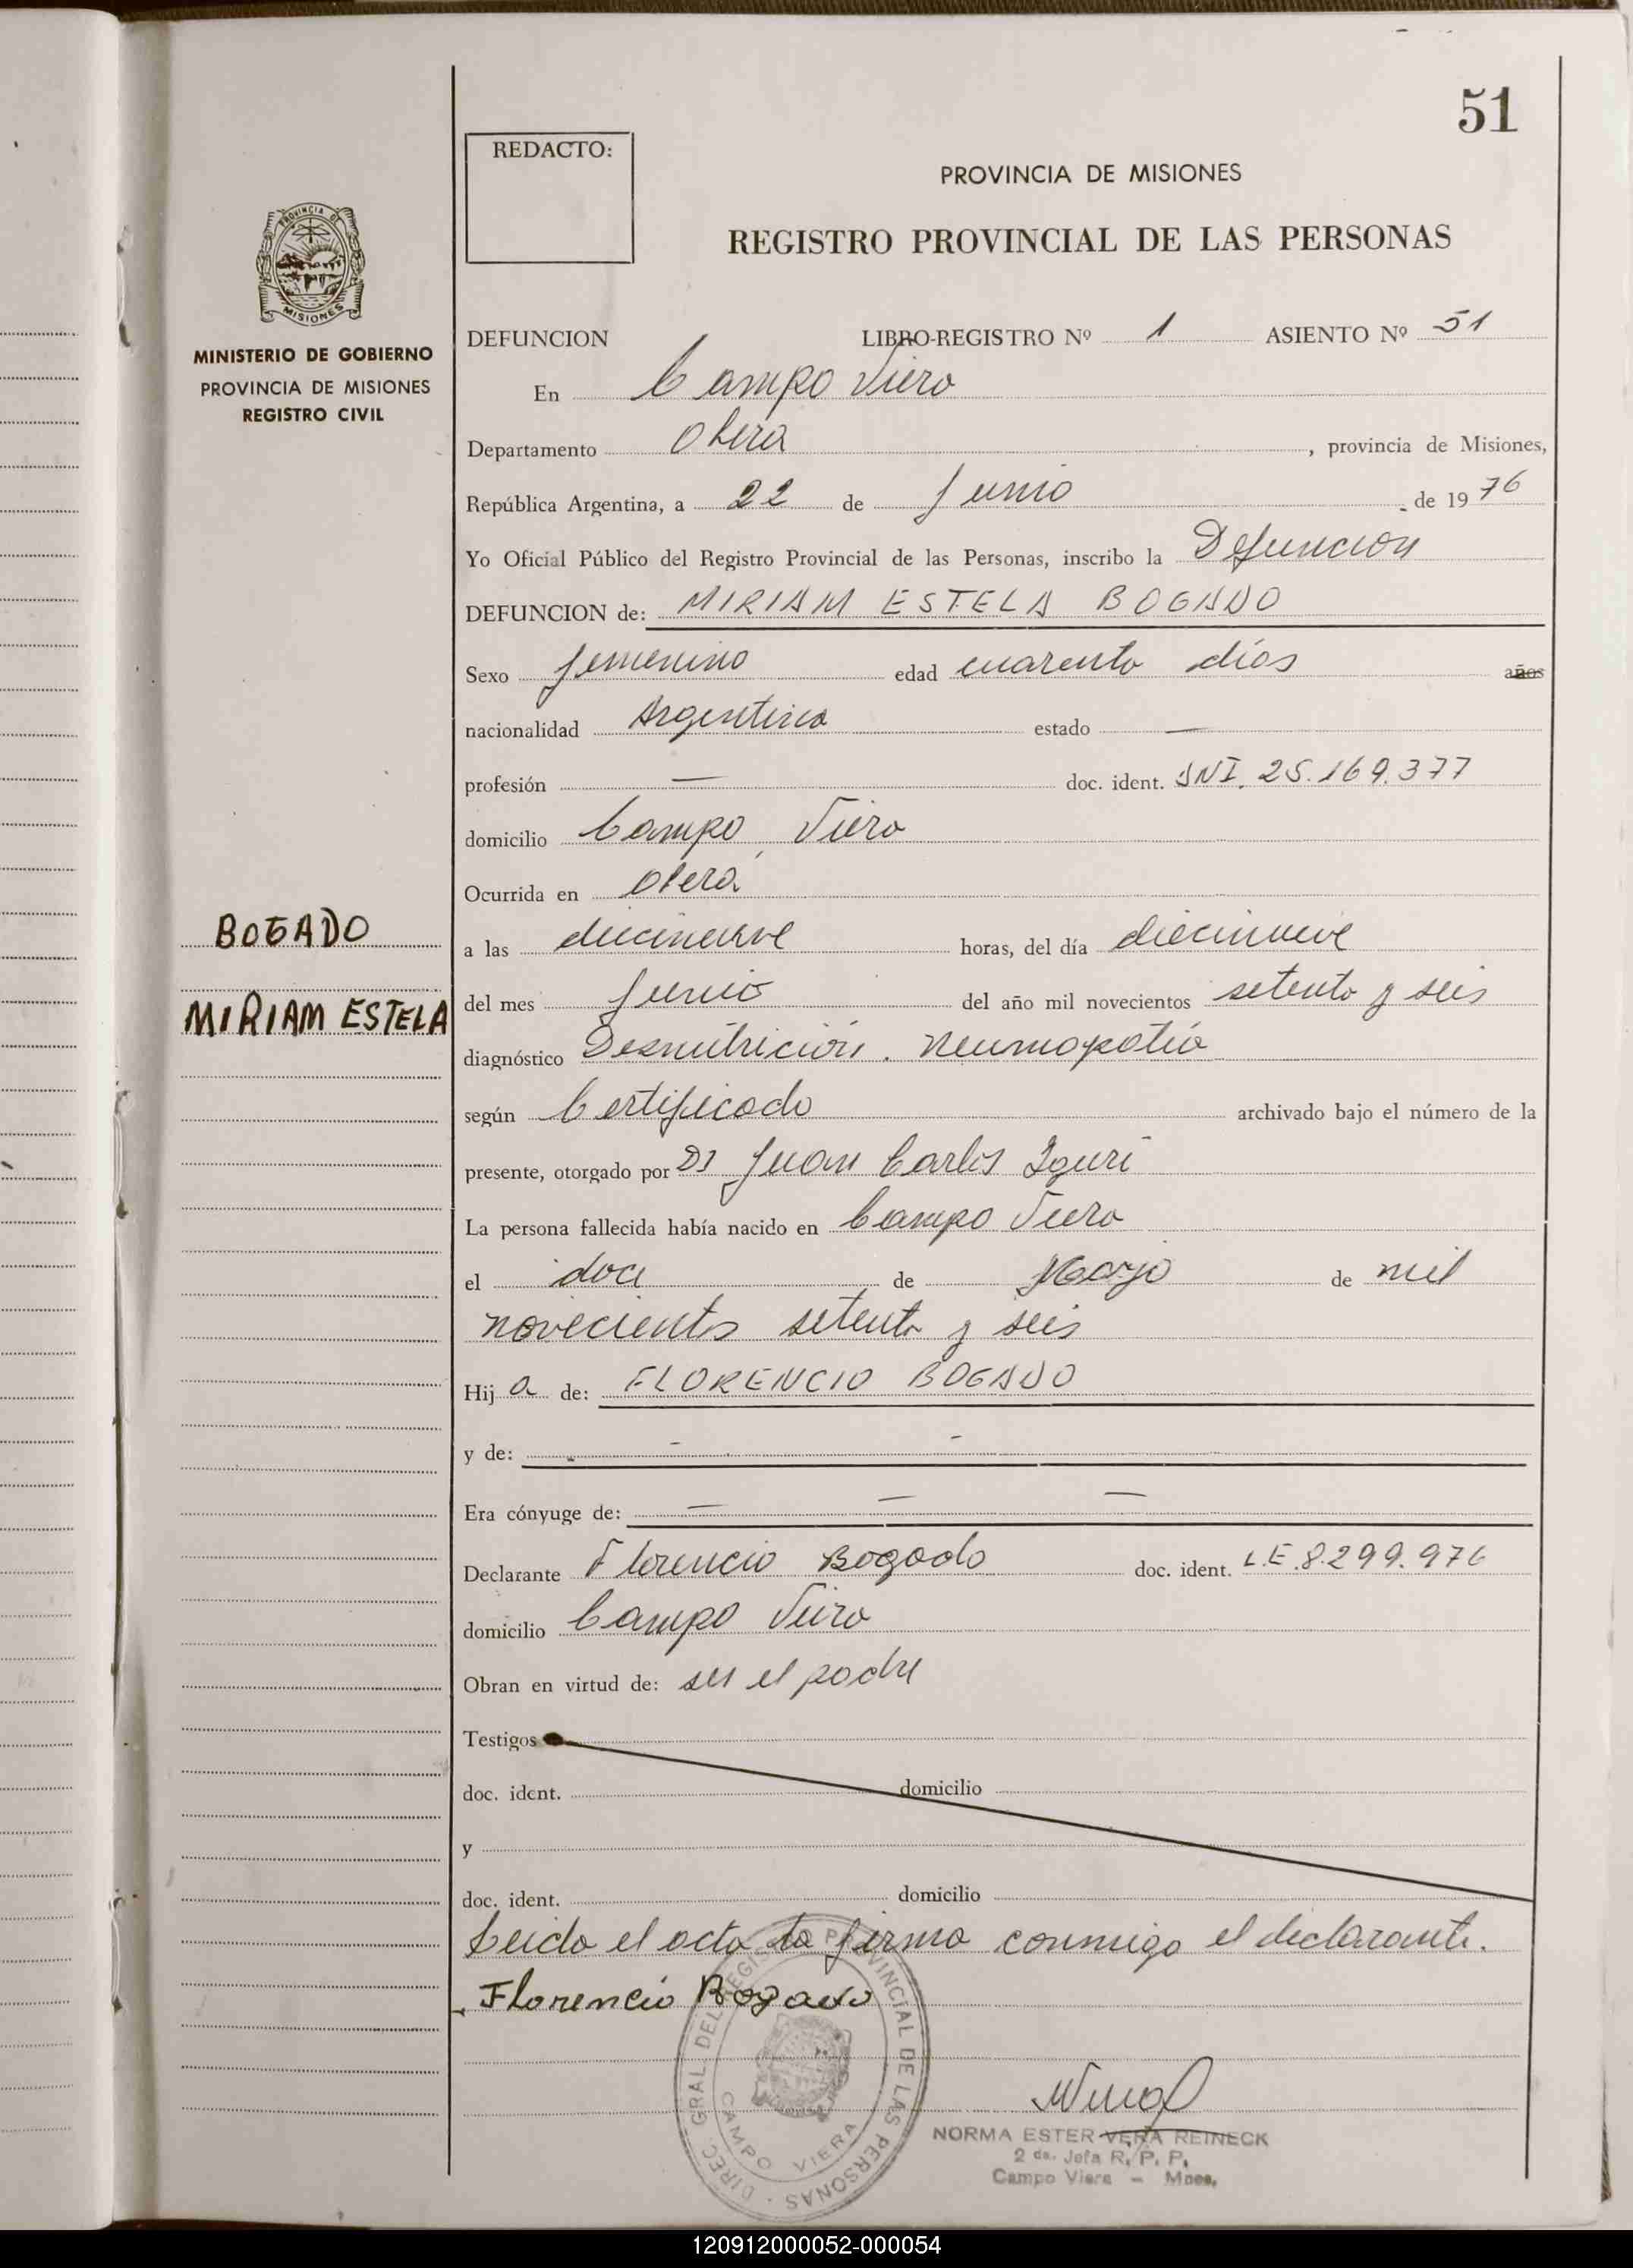 51
REDACTO:
PROVINCIA DE MISIONES
REGISTRO PROVINCIAL DE LAS PERSONAS
PROVINCIA DE
MISIONES
MINISTERIO DE GOBIERNO
PROVINCIA DE MISIONES
REGISTRO CIVIL
DEFUNCION LIBRO-REGISTRO Nº 1 ASIENTO Nº 51
En Campo Viera
Departamento Oberá , provincia de Misiones,
República Argentina, a 22 de Junio de 1976
Yo Oficial Público del Registro Provincial de las Personas, inscribo la Defuncion
DEFUNCION de: MIRIAM ESTELA BOGADO
Sexo femenino edad cuarenta días años
nacionalidad Argentina estado —
profesión — doc. ident. DNI. 25.169.377
domicilio Campo Viera
Ocurrida en Oberá
BOGADO
a las diecinueve horas, del día diecinueve
MIRIAM ESTELA
del mes Junio del año mil novecientos setenta y seis
diagnóstico Desnutrición. Neumopatía
según Certificado archivado bajo el número de la
presente, otorgado por Dr Juan Carlos
La persona fallecida había nacido en Campo Viera
el doce de Mayo de mil
novecientos setenta y seis
Hija de: FLORENCIO BOGADO
y de: - -
Era cónyuge de: — — —
Declarante Florencio Bogado doc. ident. L.E.8.299.976
domicilio Campo Viera
Obran en virtud de: ser el padre
Testigos
doc. ident. domicilio
y
doc. ident. domicilio
Leida el acta la firma conmigo el declarante.
Florencio Bogado
DIREC. GRAL. DEL REGISTRO PROVINCIAL DE LAS PERSONAS
CAMPO VIERA
NORMA ESTER VERA REINECK
2 da. Jefa R. P. P.
Campo Viera - Mnes.
120912000052-000054